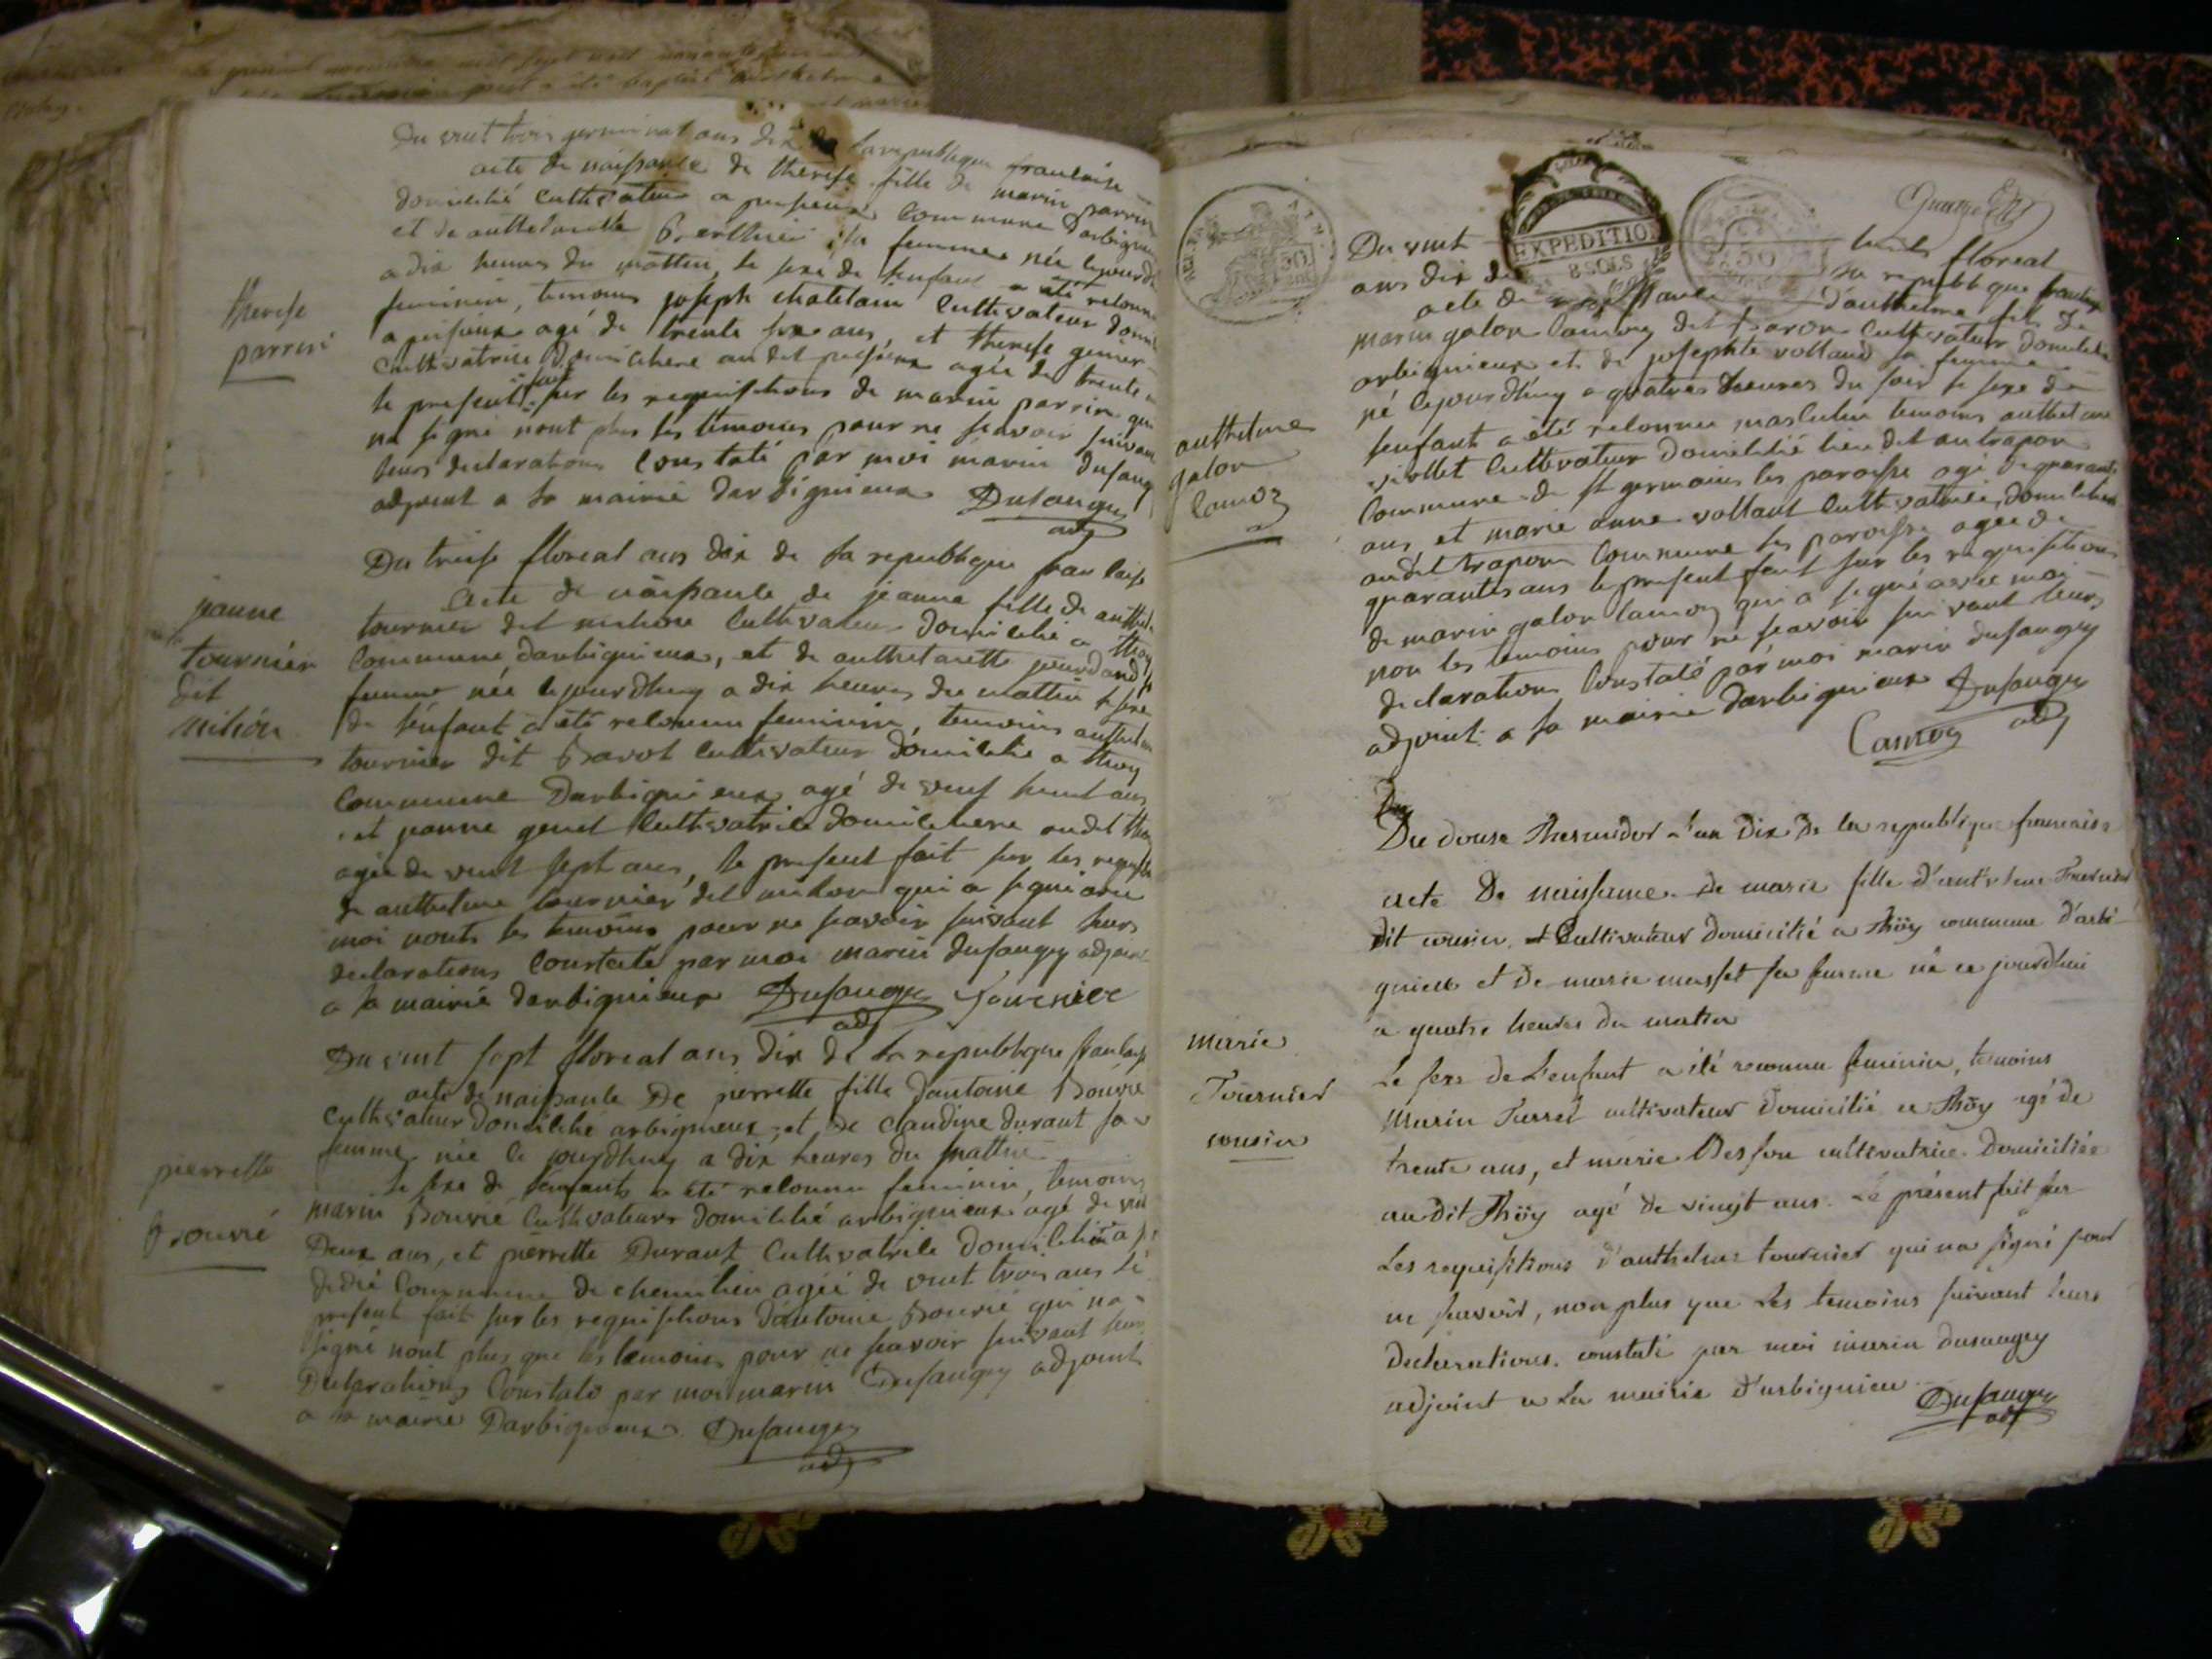 Du vint trois germinal ans dix de la republique francaise
acte de naissance de therese fille de marin parrin
domicilié cultivateur a peysieux commune darbignieu
et de anthelmette Berthier sa femme née lejourdh
a dix heures du mattin, le sexe de lenfant a été reconnu
feminin, temoins joseph chatelain cultivateur domi
a peisieux agé de trente six ans, et therese genier
cultivatrice domiciliere au dit peisieux agée de trente
le present fait sur les requisitions de marin parrin qui
na signé nont plus les temoins pour ne scavoir suivant
leurs declarations constaté par moi marin dufaug
adjoint a la mairie darbignieux Dusaugey
adj
therese
parrin
Du treise floreal ans dix de la republique francaise
acte de naissance de jeanne fille de anthel
tournier dit mihion cultivateur domicilié a thoy
commune darbignieux, et de anthelmette jourdand sa
femme née lejourdhuy a dix heures du mattin le sexe
de lenfant a été reconnu feminin, temoins anthelme
tournier dit Bavot cultivateur domicilié a thoy
commune Darbignieux agé de vint huit ans
et jeanne genet cultivatrice domiciliere audit thoy
agée de vint sept ans, le present fait sur les requisi
de anthelme tournier dit mihion qui a signé avec
moi nonts les temoins pour ne scavoir suivant leurs
declarations constaté par moi marin dusaugey adjoint
a la mairie darbignieux Dusaugey Tournier
adj
jeanne
tournier
dit
mihion
Du vint sept floreal ans dix de la republique francaise
acte de naissance De pierrette fille dantoine Bouvié
cultivateur domicilié arbignieux, et de claudine durant sa
femme née le jourdhuy a dix heures du mattin
le sexe de lenfants a été reconnu feminin, temoins
marin Bouvié cultivateurs domicilié arbignieux agé de vint
Deux ans, et pierrette Durant cultivatrice domiciliée a
commune de chemilieu agée de vint trois ans le
present fait sur les requisitions dantoine Bouvié qui na
signé nont plus que les temoins pour ne scavoir suivant leurs
Declarations constaté par moi marin Dusaugey adjoint
a la mairie Darbignieux Dusaugey
adj
pierrette
Bouvié
EXPEDITION
8 SOLS
50
Du vint huit floreal
ans dix de la republique francaise
acte de naissance danthelme fils de
marin galon lamoy dit baron cultivateur domicilié
arbignieux et de josephte volland sa femme
né lejourdhuy a quatres heures du soir le sexe de
lenfant a été reconnu masculin temoins anthelme
viollet cultivateur domicilié lieu dit au trapon
commune de st germains les paroisse agé de quarants
ans et marie anne vollant cultivatrice domiciliere
audit trapon commune les paroisse agée de
quarantes ans le present fait sur les requisitions
de marin galon lamoy qui a signé avec moi
non les temoins pour ne scavoir suivant leurs
declarations constaté par moi marin dusaugey
adjoint a la mairie darbignieux Dusaugey
Lamoy adj
anthelme
galon
lamoy
Du
Du douse thermidor l'an Dix De la republique francaise
acte De naissance de marie fille d'anthelme Tournier
dit cousin cultivateur domicilié a Thöy commune d'arbi-
gnieu et De marie masset sa femme né ce jourdhui
a quatre heures du matin
Le sexe de L'enfant a été reconnu feminin, temoins
Marin Turrel cultivateur domicilié a Thöy agé de
trente ans, et marie cultivatrice Domiciliée
au dit Thöy agé de vingt ans. Le présent fait sur
Les requisitions d'anthelme tournier qui na signé pour
ne scavoir, non plus que Les temoins suivant leurs
declarations. constaté par moi marin dusaugey
adjoint a La mairie d'arbignieu
Dusaugey
adj
marie
Tournier
cousin